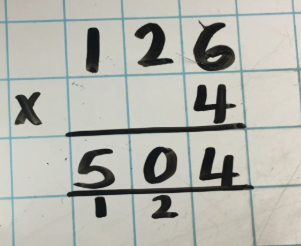 126
x 4
504
1 2